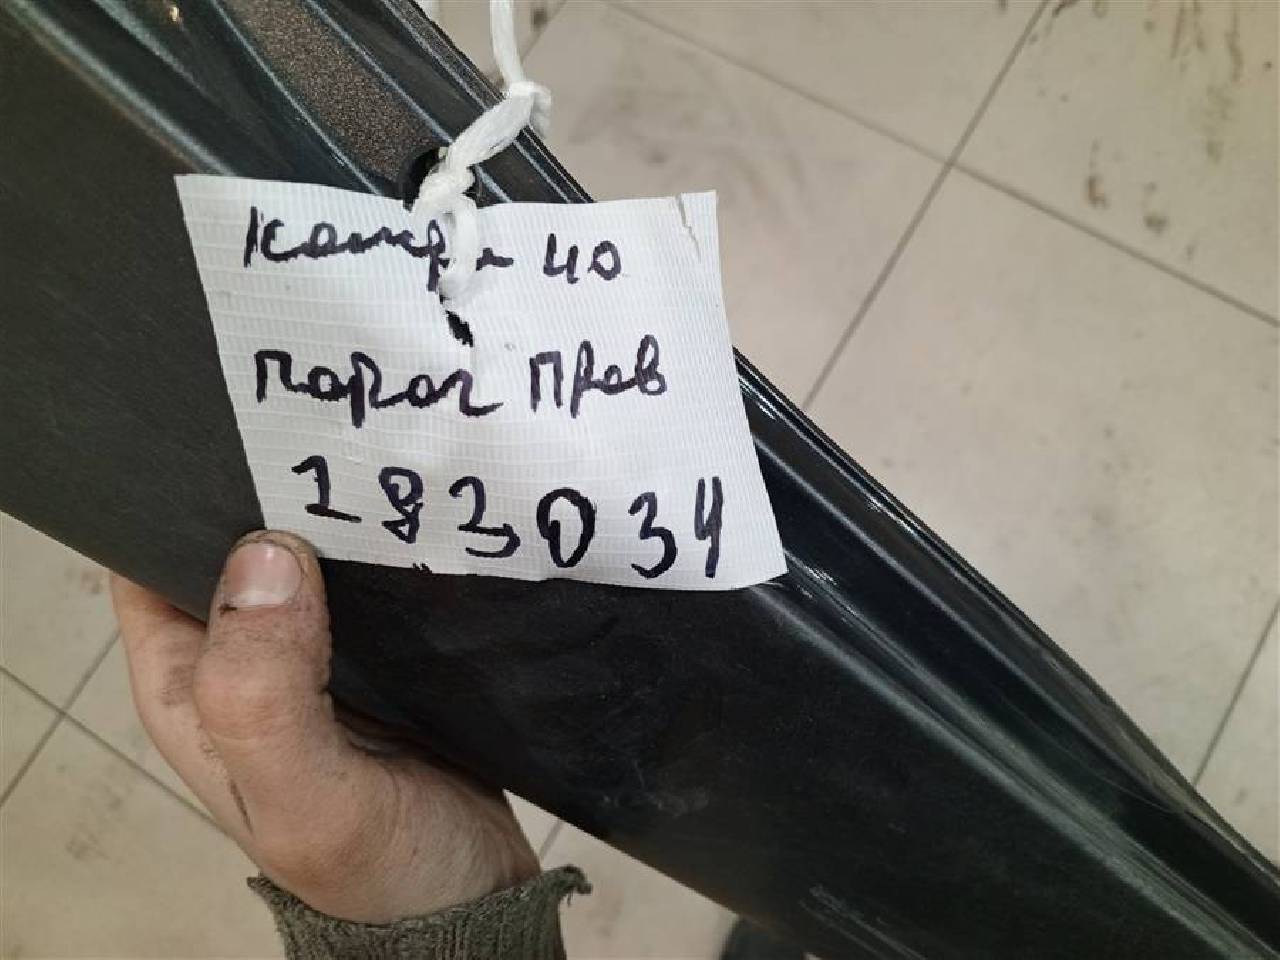 Камри 40
порог Прав
183034